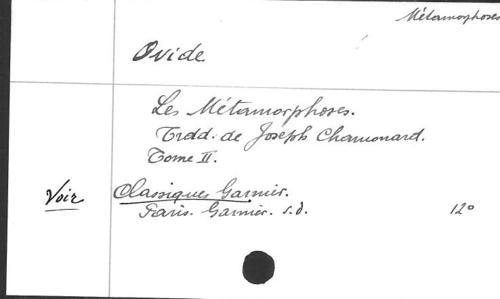 Métamorphoses
Ovide
Les Métamorphoses.
Trad. de Joseph Chamonard.
Tome II.
Voir Classiques Garnier.
Paris. Garnier. s.d. 12°